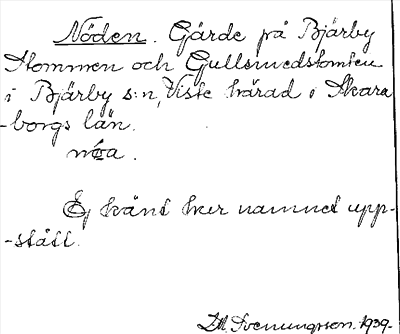 Nöden. Gärde på Bjärby
Stommen och Gullsmedstomten
i Bjärby s:n, Viste härad i Skara
-borgs län.
nöa.
Ej känt hur namnet upp-
-stått.
D.A. Svenungsson. 1939.